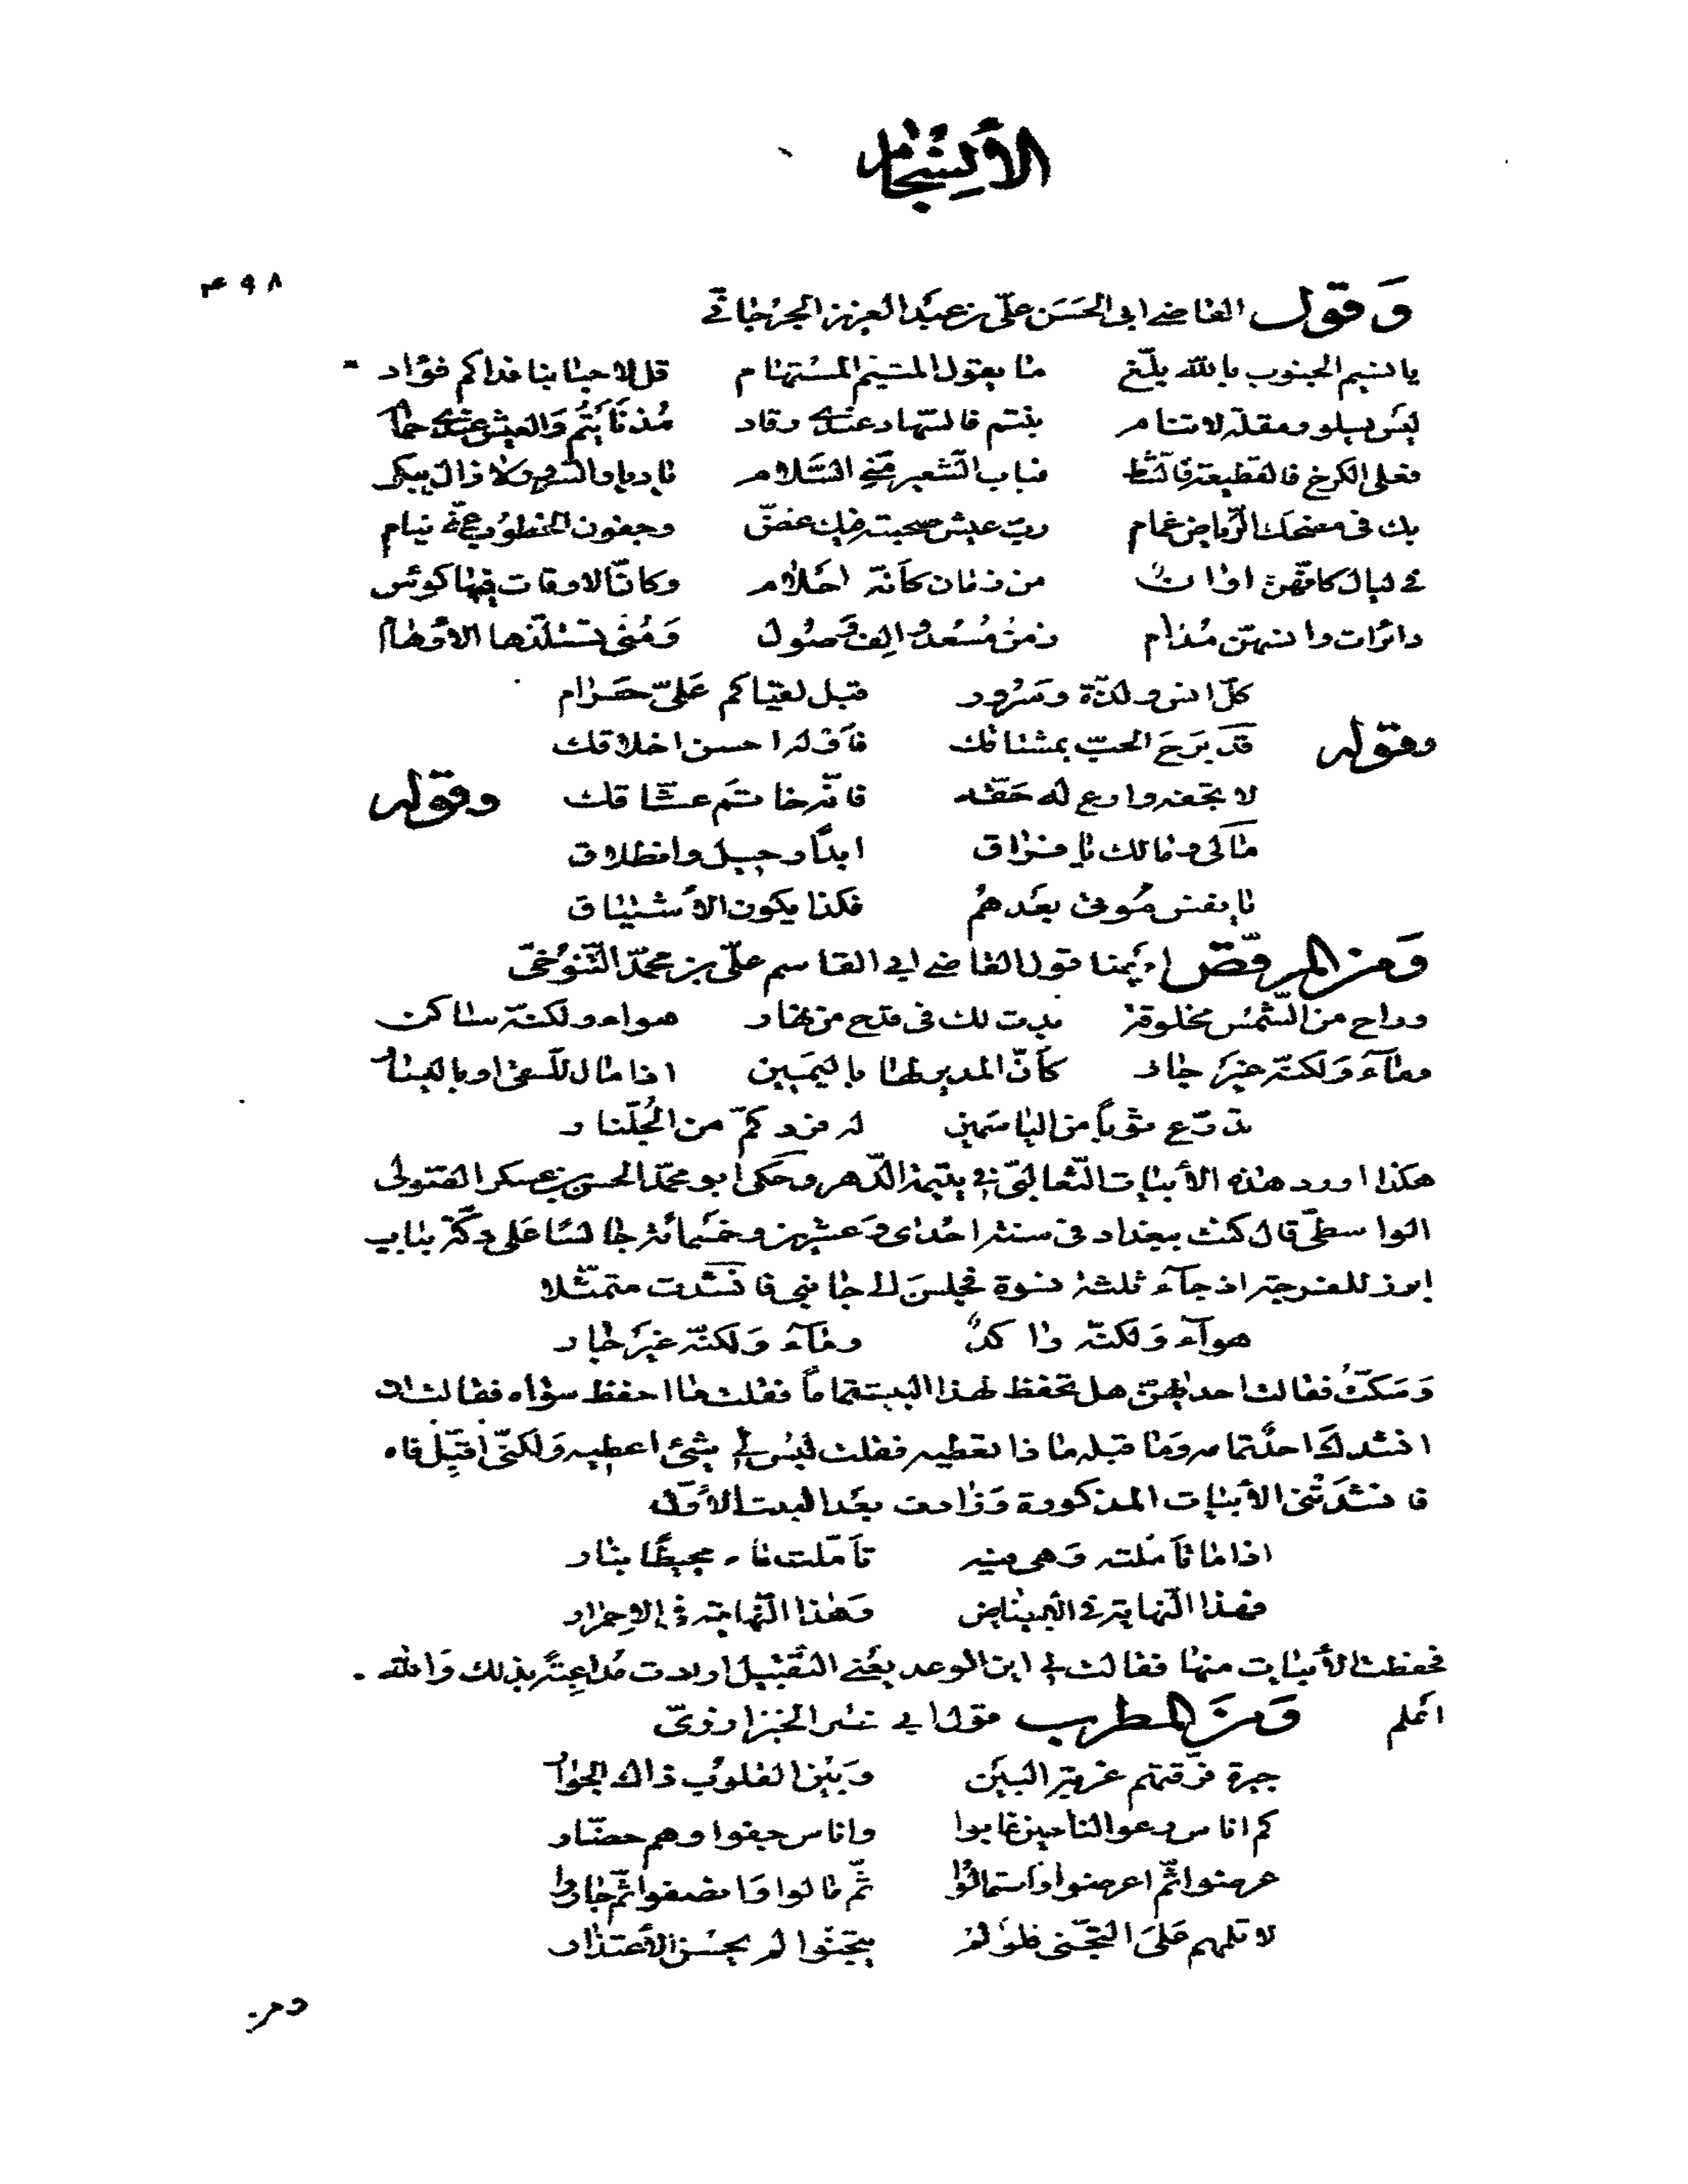 الأنسجام
٤٩٨
وَقول القاضي ابي الحَسَن علّي بن عبَد العزيز الجرجانّي
يا نسيم الجنوب بالله بلّغ ما يقول المتيّم المسُتهام قل لاحبابنا فداكم فؤاد
ليَس يسلو ومقلة لاتنام بنتم فالسّهاد عندي رقاد مُذ نَأيتُم وَالعيش عندي حمام
فعلى الكرخ فالقطيعة فالشّط فباب الشّعير منّي السَّلام يا ديار السّرور لا زال يبكي
بك في مضحك الرّياض غمام ربّ عيش صحبته فيك غضّ وجفون الخطوُب عنّي نيام
في ليال كانّهن امانٌ من زمان كأنّه احَلام وكانّ الاوقات فيها كوئس
دائرات وانسهنّ مُدام زمن مُسُعد والف وَصوُل وَمُنى تستلذّها الأوَهام
كلّ انس ولذّة وسَرُور قبل لقياكم عَليّ حَرام
وقوله قدَ بَرحَ الحبّ بمشتاقك فأَوْله احسن اخلاقك
لا تجفه وارع له حَقّه فانّه خاتَم عشّاقك وقوله
مالي ومالك يا فراق ابداً رحيل وانطلاق
يا نفس مُوتي بعَدهمُ فكذا يكون الأشتياق
وَمن المرقّص ايَضا قول القاضي ابي القاسم علّي بن محمدّ التّنوُخيّ
وراح من الشّمس مخلوقة بدت لك في قدح من نهار هواء ولكنّه ساكن
وماَءَ وَلكنّه غيرَ جار كَأنّ المدير لها باليمَين اذا مال للسّقي او باليسار
تدرّع ثوباً من الياسَمين له فرد كمّ من الجُلّنار
هكذا اورد هذه الأبيات الثّعالبيّ في يتيمة الدّهر وحَكى ابو محمدّ الحسن بن عسكر الصّولى
الواسطيّ قال كنت ببغداد في سنة احدى وَعشرين وخمَسمائة جالسًا عَلى دكّة بباب
ابرز للفرجة اذ جآءَ ثلثة نسوة فجلسنَ الى جانبي فانَشدت متمثّلا
هوآءَ وَلكنّه راكدٌ ومآءَ وَلكنّه غيرَ جار
وَسَكتُّ فقالت احداهنّ هل تحفظ لهذا البيت تماماً فقلت ما احفظ سواه فقالت ان
انشدك احدٌ تمامه وَما قبله ماذا تعطيه فقلت ليَس لي شئ اعطيه وَلكنّي اقبّل فاه
فانشدَتْني الأبيات المذكورة وَزادت بعَد البيت الأوّل
اذا ما تأمّلته وَهي فيه تأمّلت ماء محيطاً بنار
فهذا النّهاية في الأبيضاض وَهذا النّهاية في الاحمرار
فحفظت الأبيات منها فقالت لي اين الوعد يعَني التّقبيل ارادت مُداعبةً بذلك وَالله
اعَلم وَمنَ المطرب قول ابي نصر الخبزارزيّ
جيرة فرّقتهم غربة البيَن وَبَين القلوُب ذاك الجوار
كم اناس رعوا لنا حين غابوا واناس جفوا وهم حضّار
عرضوا ثّم اعرضوا وَاستمالوُا ثّم مالوا وَانصفوا ثّم جاروا
لا تلمهم عَلىَ التّجنّي فلوَ لم يتجنّوا لم يحسُن الأعتذار